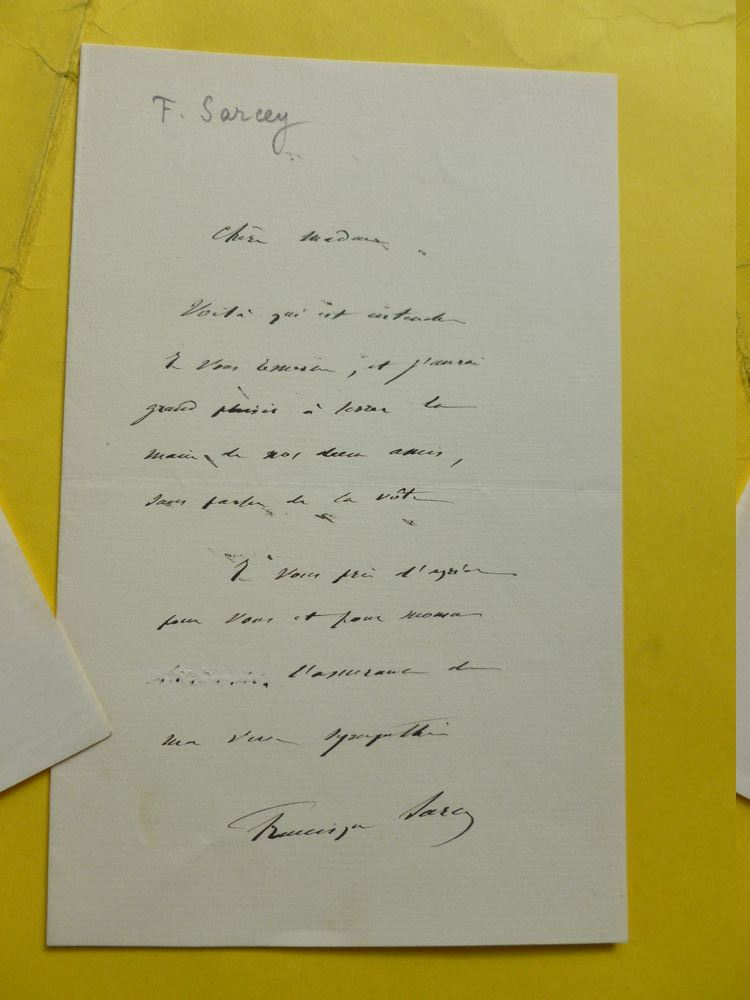 F. Sarcey
Chère madame.
Voilà qui est entendu
Je vous remercie, et j'aurai
grand plaisir à serrer la
main de nos deux amis,
sans parler de la vôtre
Je vous prie d'agréer
pour vous et pour monsieur
l'assurance de
ma vive sympathie
Francisque Sarcey